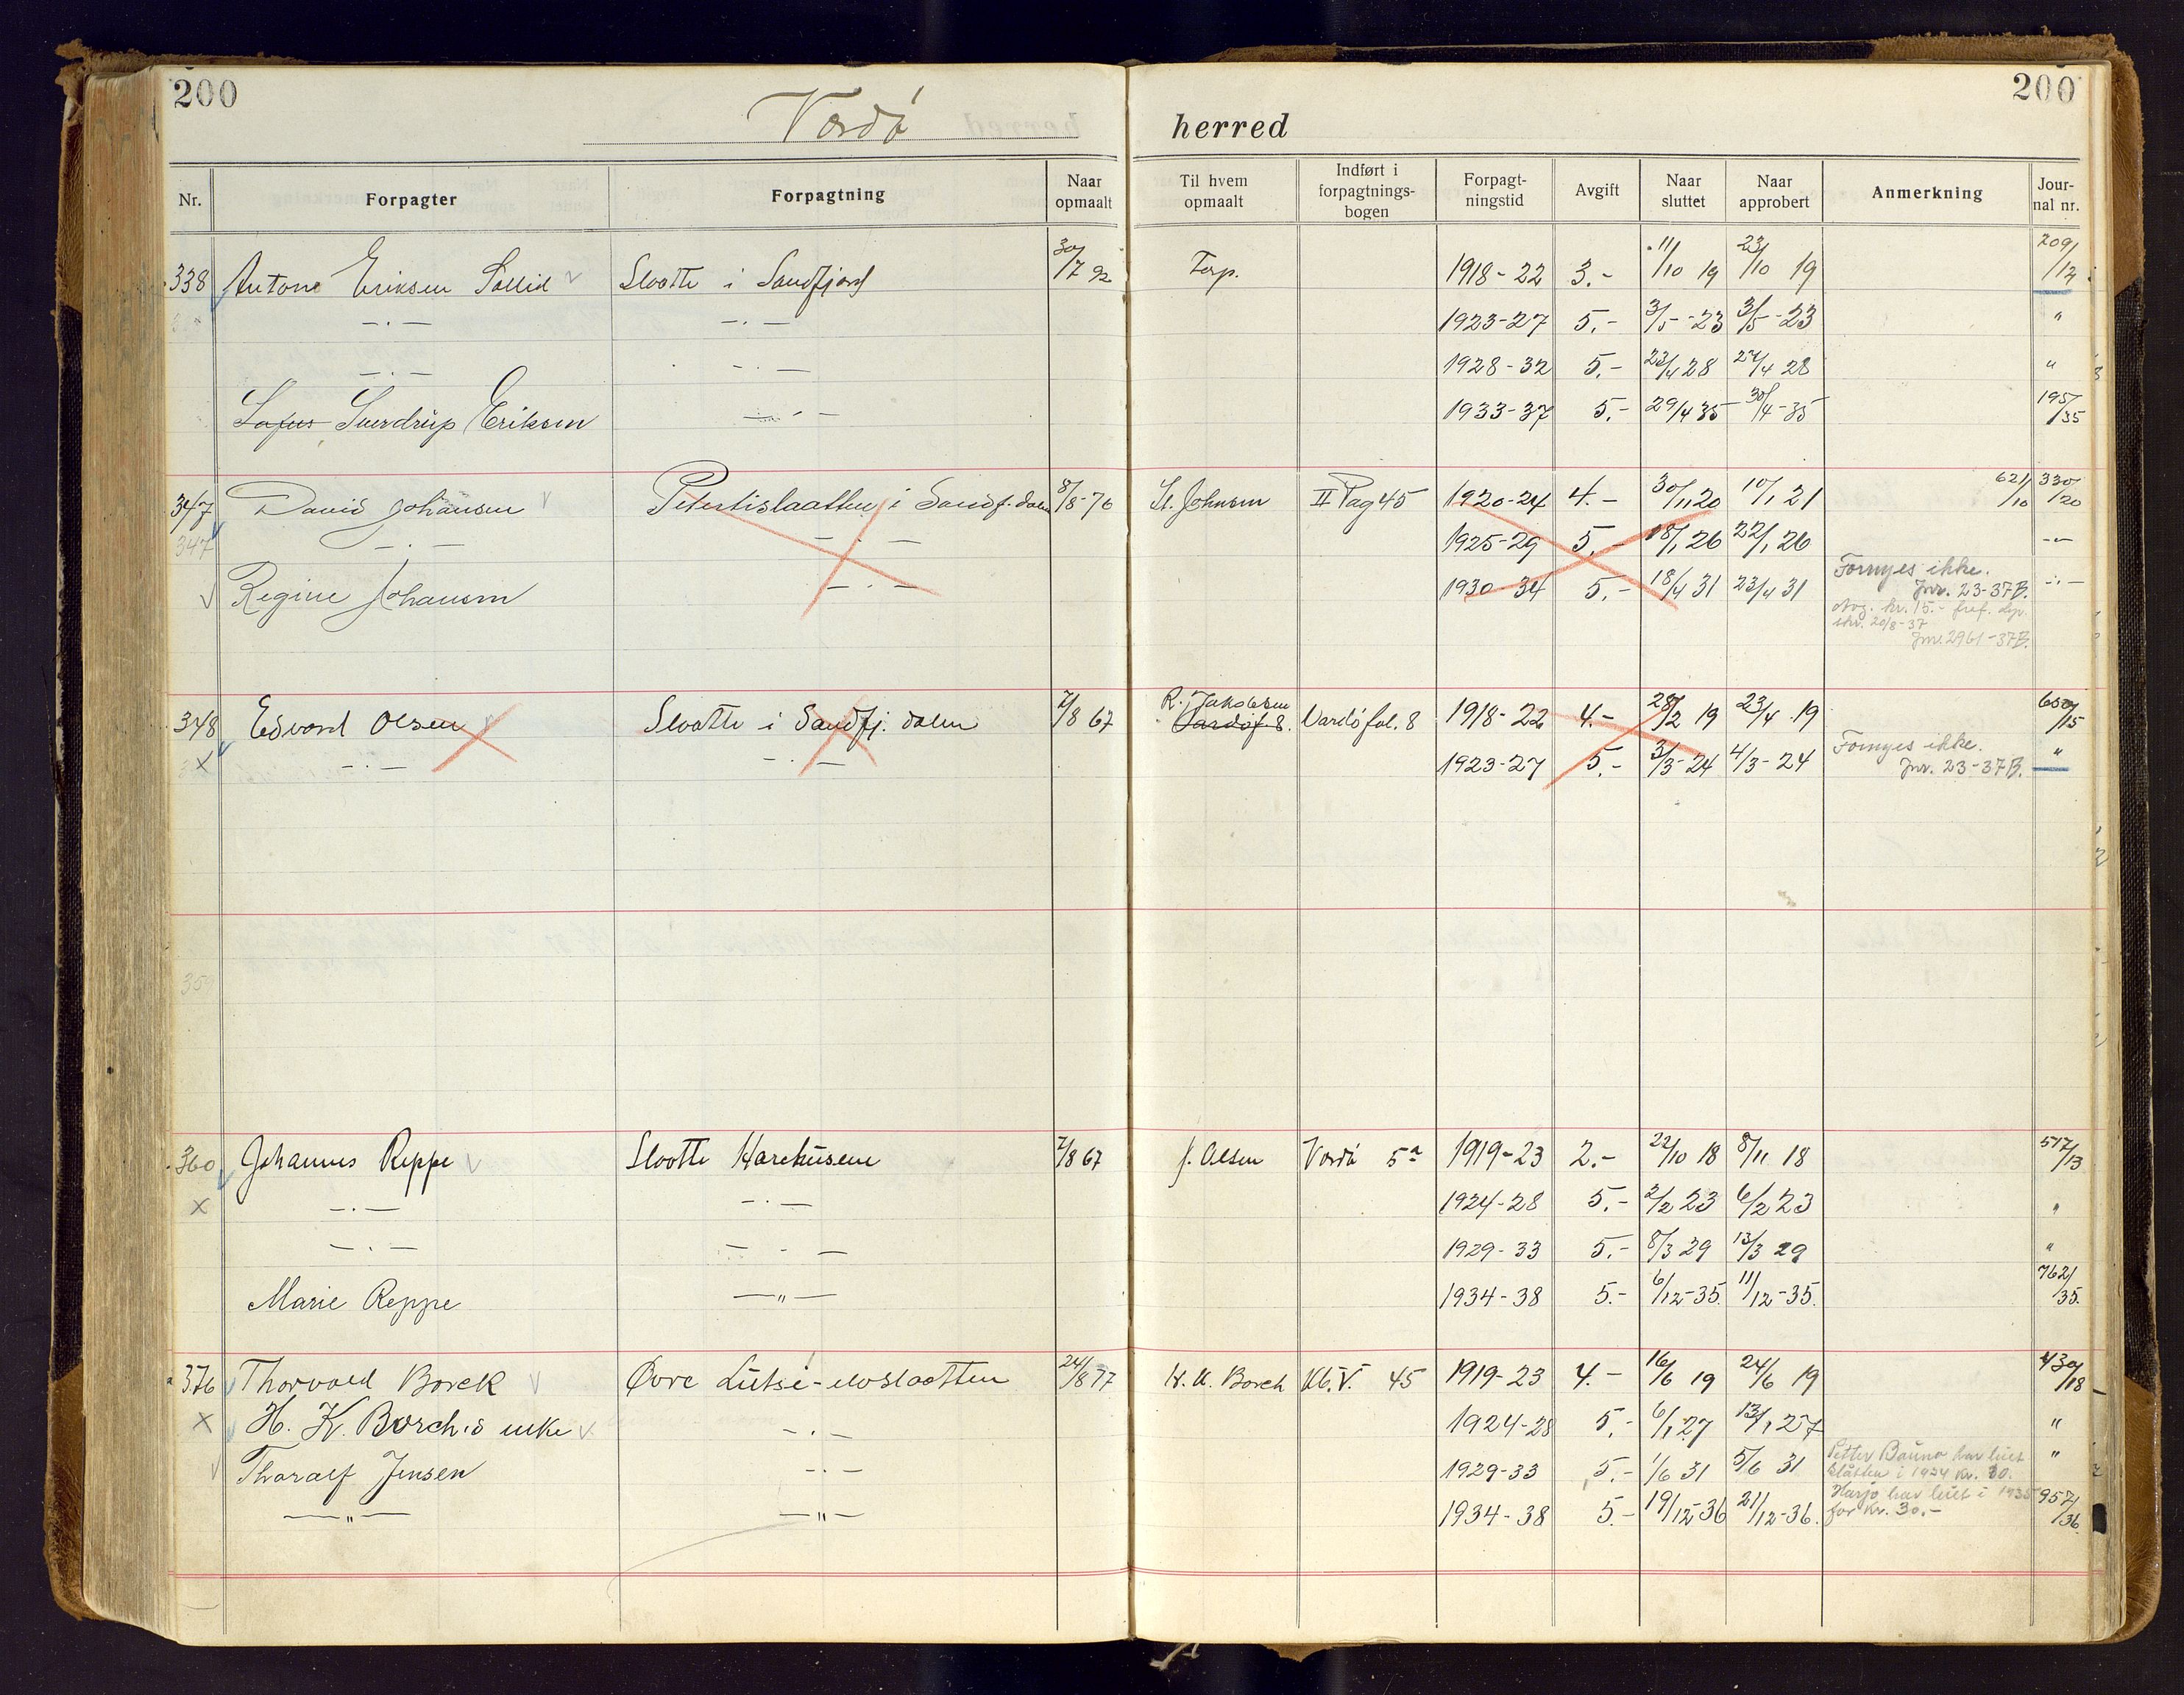 200
200
Vardö herred
Nr. Forpagter Forpagtning Naar opmaalt Til hvem opmaalt Indført i forpagtnings-bogen Forpagt-ningstid Avgift Naar sluttet Naar approbert Anmerkning Jour-nal nr.
338 Antone Eriksen Sallid Slaatte i Sandfjord 30/7 92 Terp. 1918-22 3.- 11/10 19 23/10 19 209/12
—·— —·— 1923-27 5.- 3/5-23 3/5-23 "
—·— —·— 1928-32 5.- 23/4 28 27/4 28 "
Sofus Sverdrup Eriksen —·— 1933-37 5.- 29/4 35 30/4-35 195/35
347 David Johansen Petertislaatten i Sandf. dalen 8/8-76 St. Johnsen II Pag 45 1920-24 4.- 30/11 20 10/1 21 621/10 330/20
347 —·— —·— 1925-29 5.- 18/1 26 22/1 26 -"-
Regine Johansen —·— 1930-34 5.- 18/4 31 23/4 31 Fornyes ikke. —·—
Jnr. 23-37B.
Avg. kr. 15.- fref. dep.
skr. 20/8-37
Jnr. 2961-37B.
348 Edvard Olsen Slaatte i Sandfj. dalen 7/8 67 R. Jakobsen Vardöf. 8. Vardö fol. 8 1918-22 4.- 28/2 19 23/4 19 650/15
x —·— —·— 1923-27 5.- 3/3-24 4/3-24 Fornyes ikke. "
Jnr. 23-37B.
359
360 Johannes Reppe Slaatte Harehusene 7/8 67 J. Olsen Vardö 5a 1919-23 2.- 22/10 18 8/11 18 517/13
x —·— —·— 1924-28 5.- 2/2 23 6/2 23 "
—·— —·— 1929-33 5.- 8/3 29 13/3 29 "
Marie Reppe —"— 1934-38 5.- 6/12-35. 11/12-35. 762/35.
376 Thorvald Borck Øvre Lutsi-elvslaatten 24/8 77 H. K. Borch Kb. V. 45 1919-23 4.- 16/6 19 24/6 19 430/18
x H. K. Borch's enke —·— 1924-28 5.- 6/1 27 13/1 27 "
Tharalf Jensen —·— 1929-33 5.- 1/6 31 5/6 31 Petter Bauna har leiet "
slåtten i 1934 kr. 30.
—"— —"— 1934-38 5.- 19/12 36 21/12-36. Harjo har leiet i 1935 957/36
for kr. 30.-